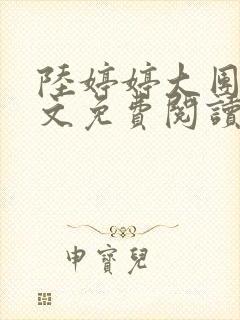 陸婷婷大團
文免費閱讀
申寶兒